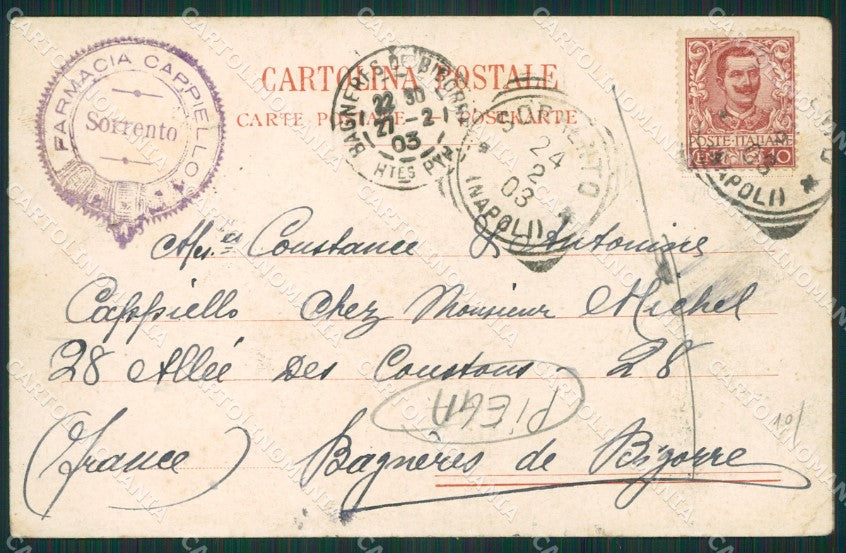 CARTOLINA POSTALE
CARTE POSTALE - POSTKARTE
FARMACIA CAPPIELLO
Sorrento
BAGNÈRES DE BIGORRE
22 30
27 - 2
03
HTES PYR
SORRENTO
24
2
03
(NAPOLI)
POSTE ITALIANE
(NAPOLI)
Constance & Antonine
Cappiello chez Monsieur Michel
28 Allée des Coustous - 28
PIEGA
10/
(France) Bagnères de Bigorre
CARTOLINOMANIA